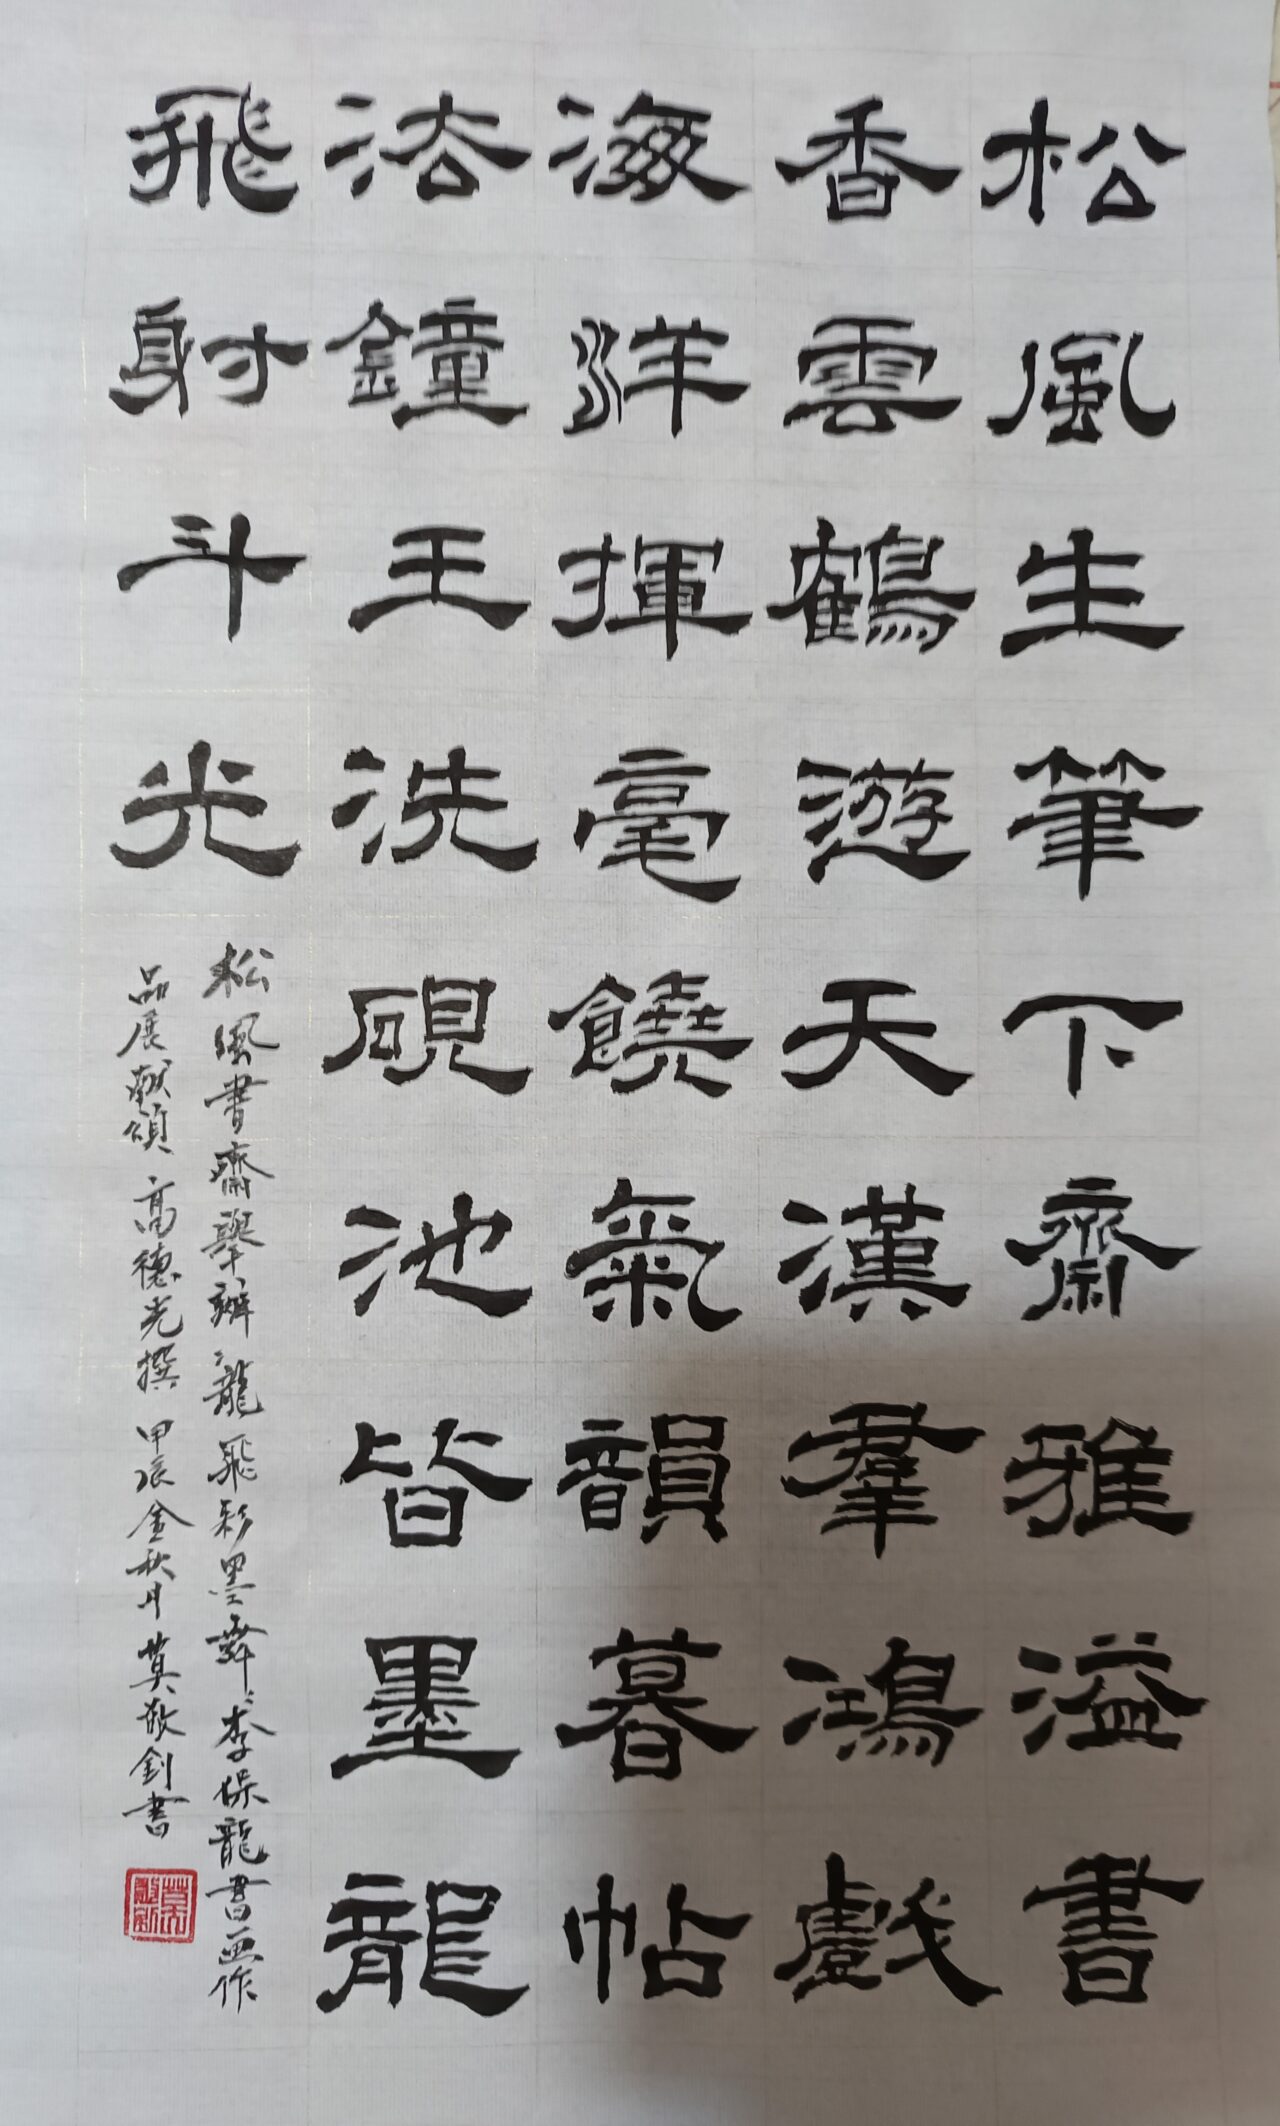 松風生筆下齋雅溢書
香雲鶴遊天漢羣鴻戲
海洋揮毫饒氣韻暮帖
法鐘王洗硯池皆墨龍
飛射斗光
松風書齋舉辦龍飛彩墨舞李保龍書画作
品展献頌高德光撰甲辰金秋月莫敬釗書